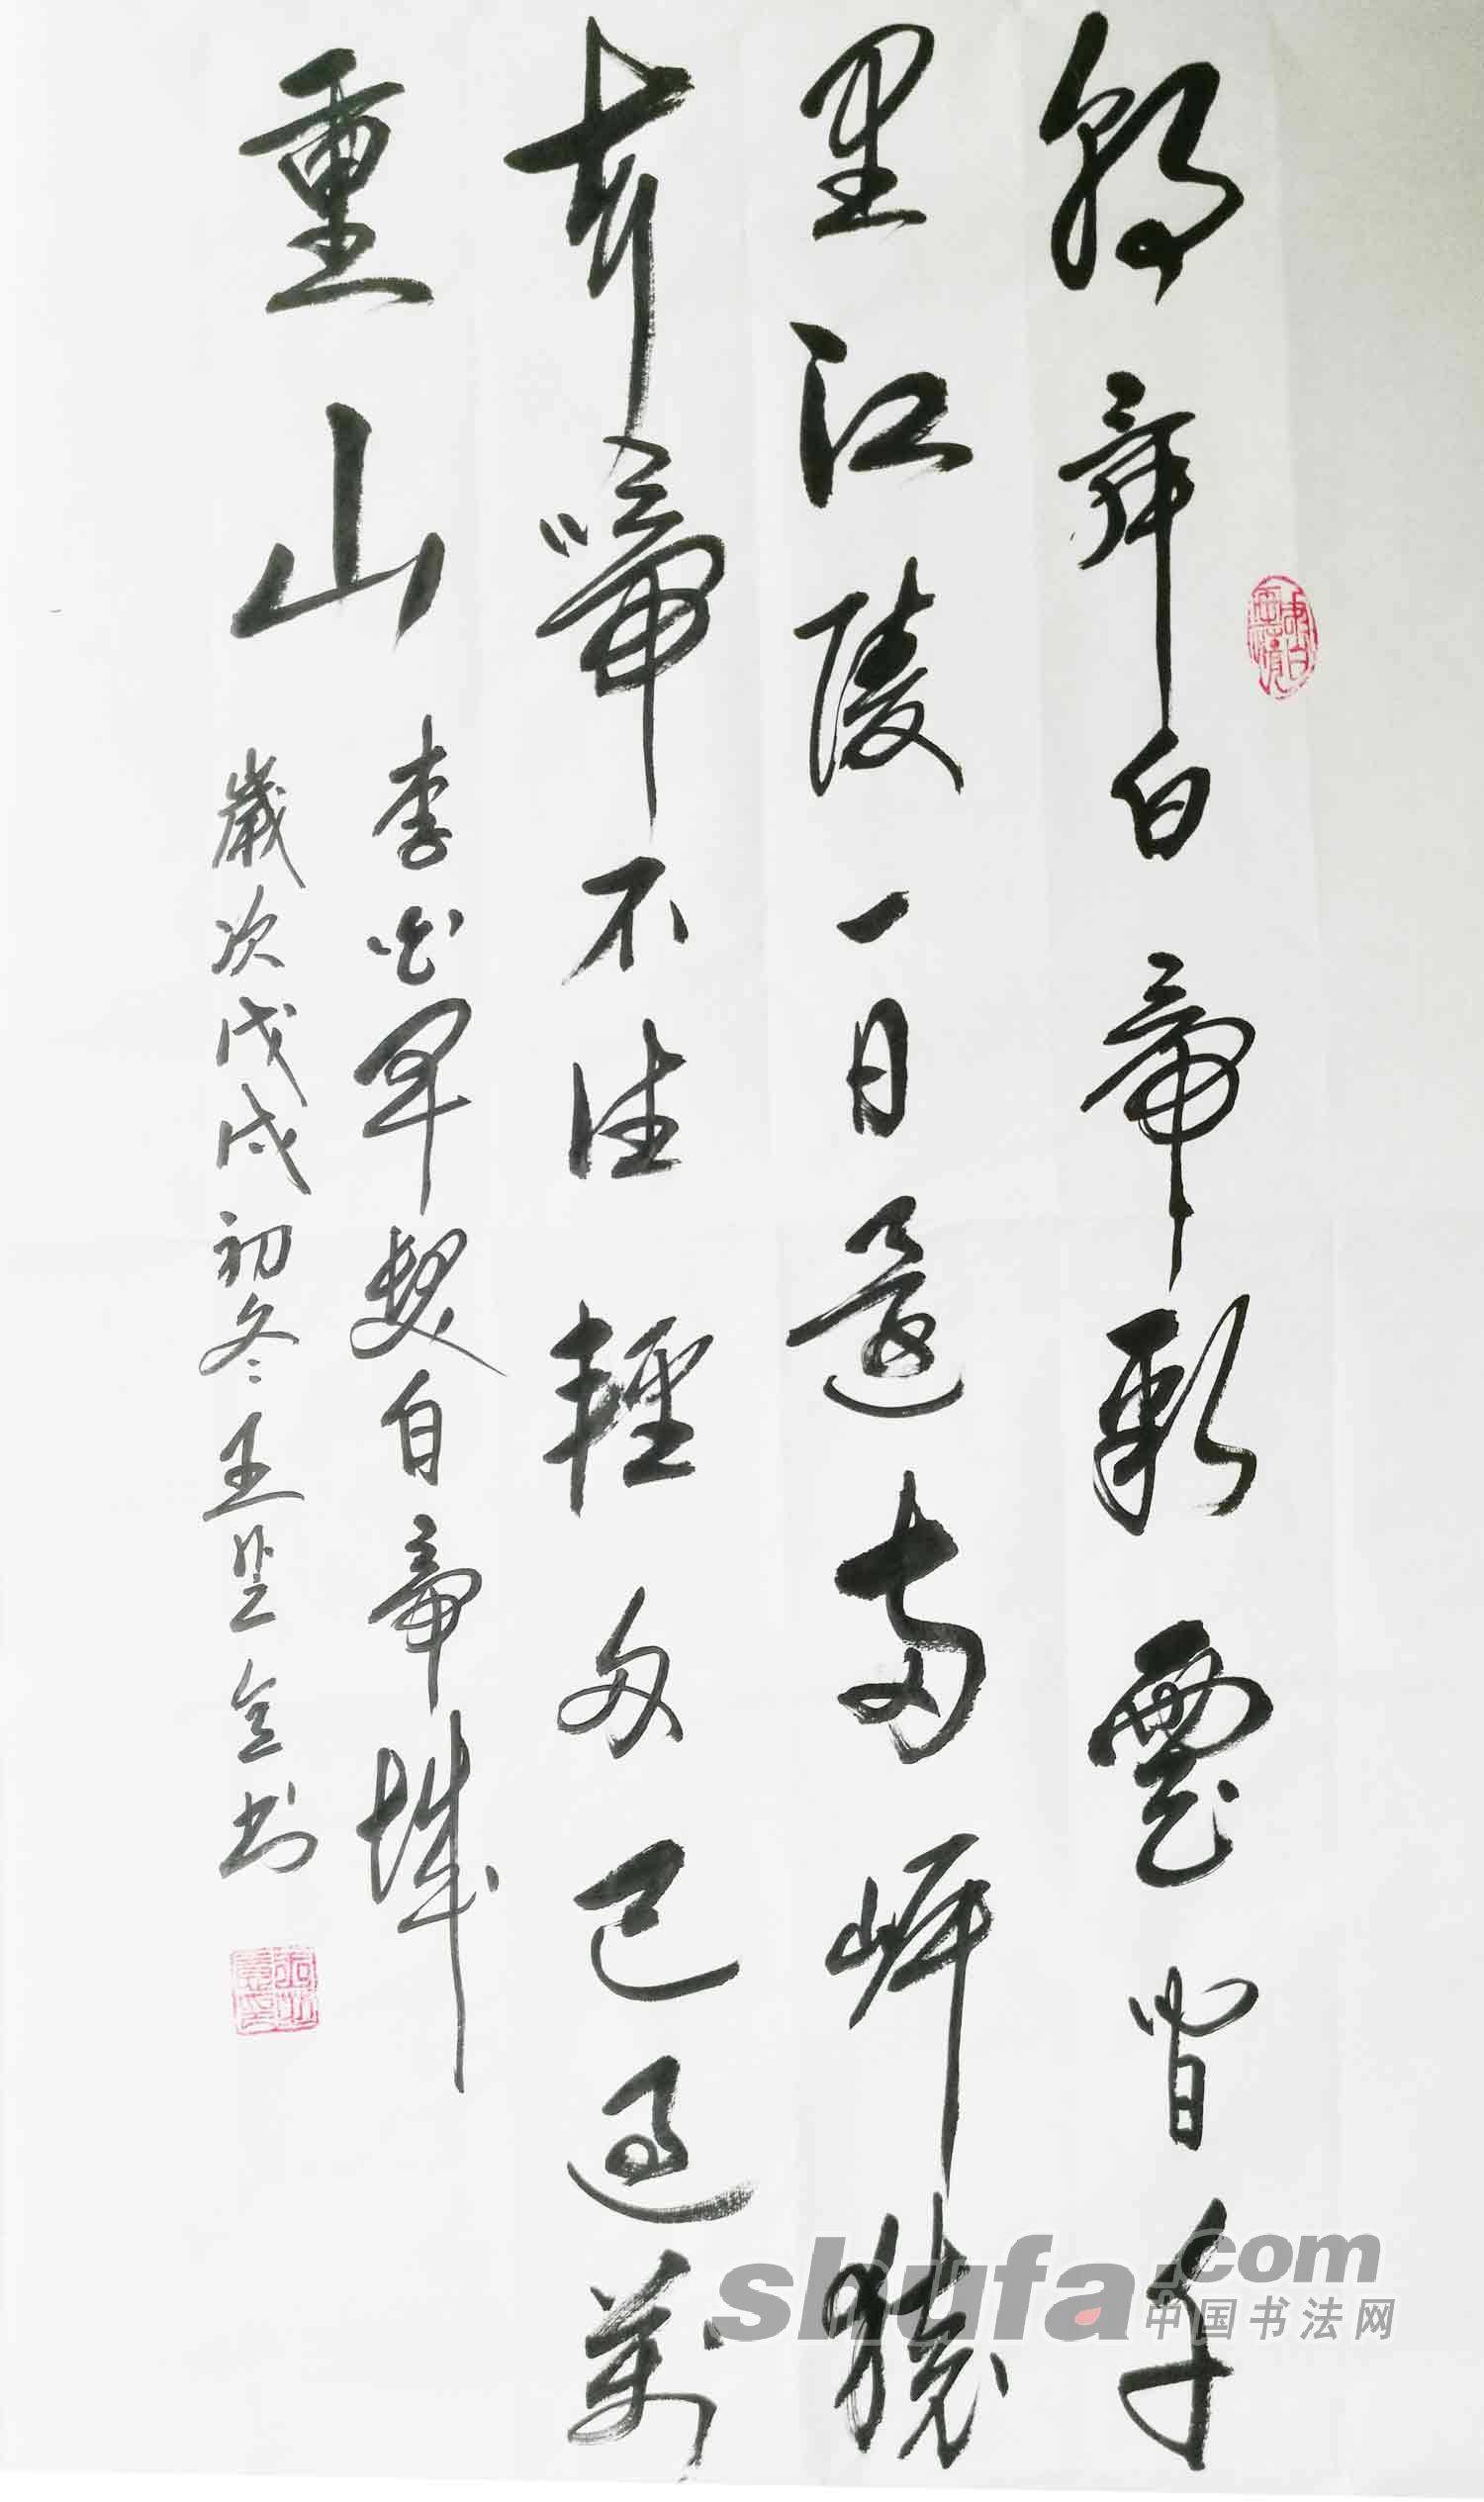 朝辞白帝彩雲間千
里江陵一日還兩岸猿
声啼不住輕舟已過萬
重山
李白早發白帝城
歲次戊戌初冬王望全書
shufa.com
中国书法网